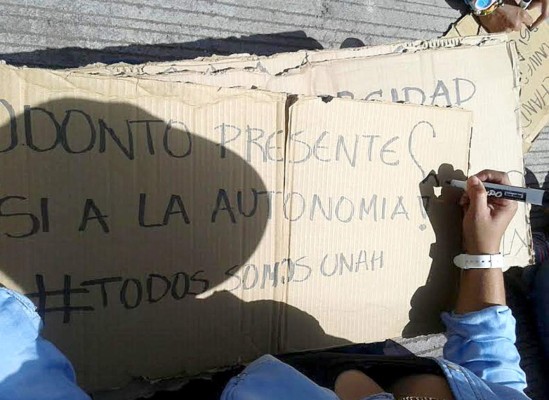 ODONTO PRESENTE
SI A LA AUTONOMIA!
#TODOS SOMOS UNAH